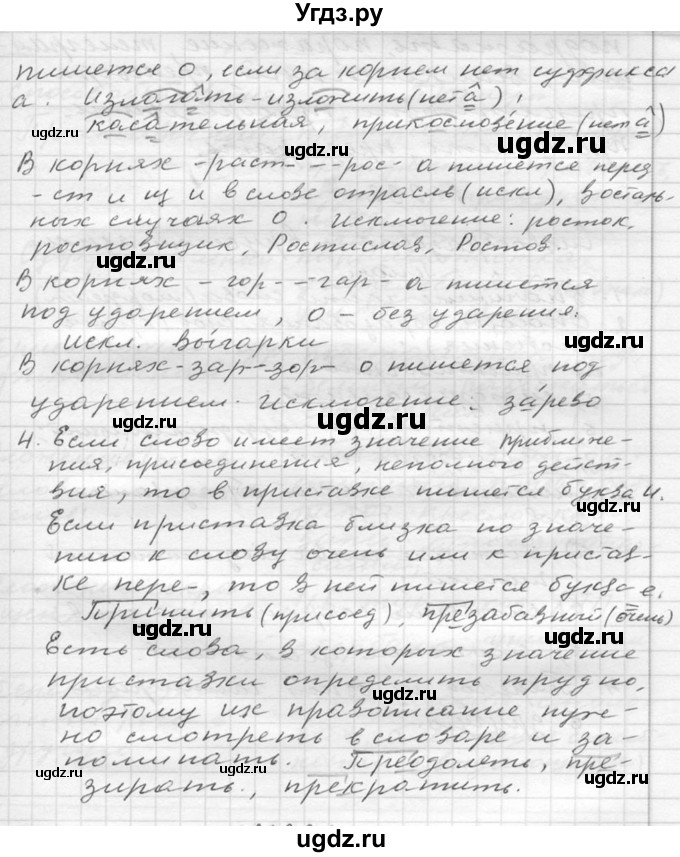 Угдз.ру
пишется о, если за корнем нет суффикса
а. Излагать - изложить (нет а),
ugdz.ru ugdz.ru
касательная, прикосновение (нет а)
ugdz.ru
В корнях -раст- - -рос- а пишется перед
-ст и щ и в слове отрасль (искл), в осталь-
ных случаях о. Исключение: росток,
ugdz.ru
ростовщик, Ростислав, Ростов.
ugdz.ru
В корнях -гор- - -гар- а пишется
под ударением, о - без ударения.
искл. выгарки
ugdz.ru
В корнях -зар- -зор- о пишется под
ударением. Исключение: зарево
ugdz.ru ugdz.ru
4. Если слово имеет значение приближе-
ния, присоединения, неполного дейст-
ugdz.ru
вия, то в приставке пишется буква и.
Если приставка близка по значе-
нию к слову очень или к пристав-
ке пере-, то в ней пишется буква е.
Пришить (присоед), презабавный (очень)
ugdz.ru ugdz.ru
Есть слова, в которых значение
приставки определить трудно,
ugdz.ru
поэтому их правописание нуж-
но смотреть в словаре и за-
поминать. Преодолеть, пре-
ugdz.ru ugdz.ru
зирать, прекратить.
ugdz.ru